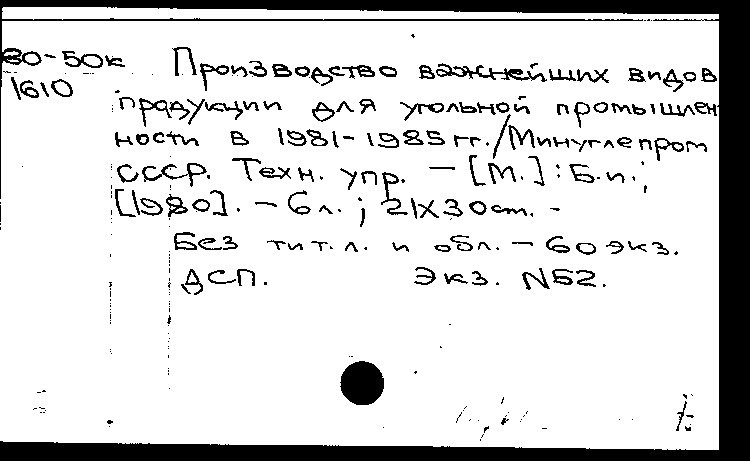 80-50к Производство важнейших видов
1610 продукции для угольной промышлен
ности в 1981-1985 гг. / Минуглепром
СССР. Техн. упр. — [М.] : Б.и.,
[1980]. — 6 л. ; 21X30 cm. -
Без тит. л. и обл. — 60 экз.
ДСП. Экз. №52.